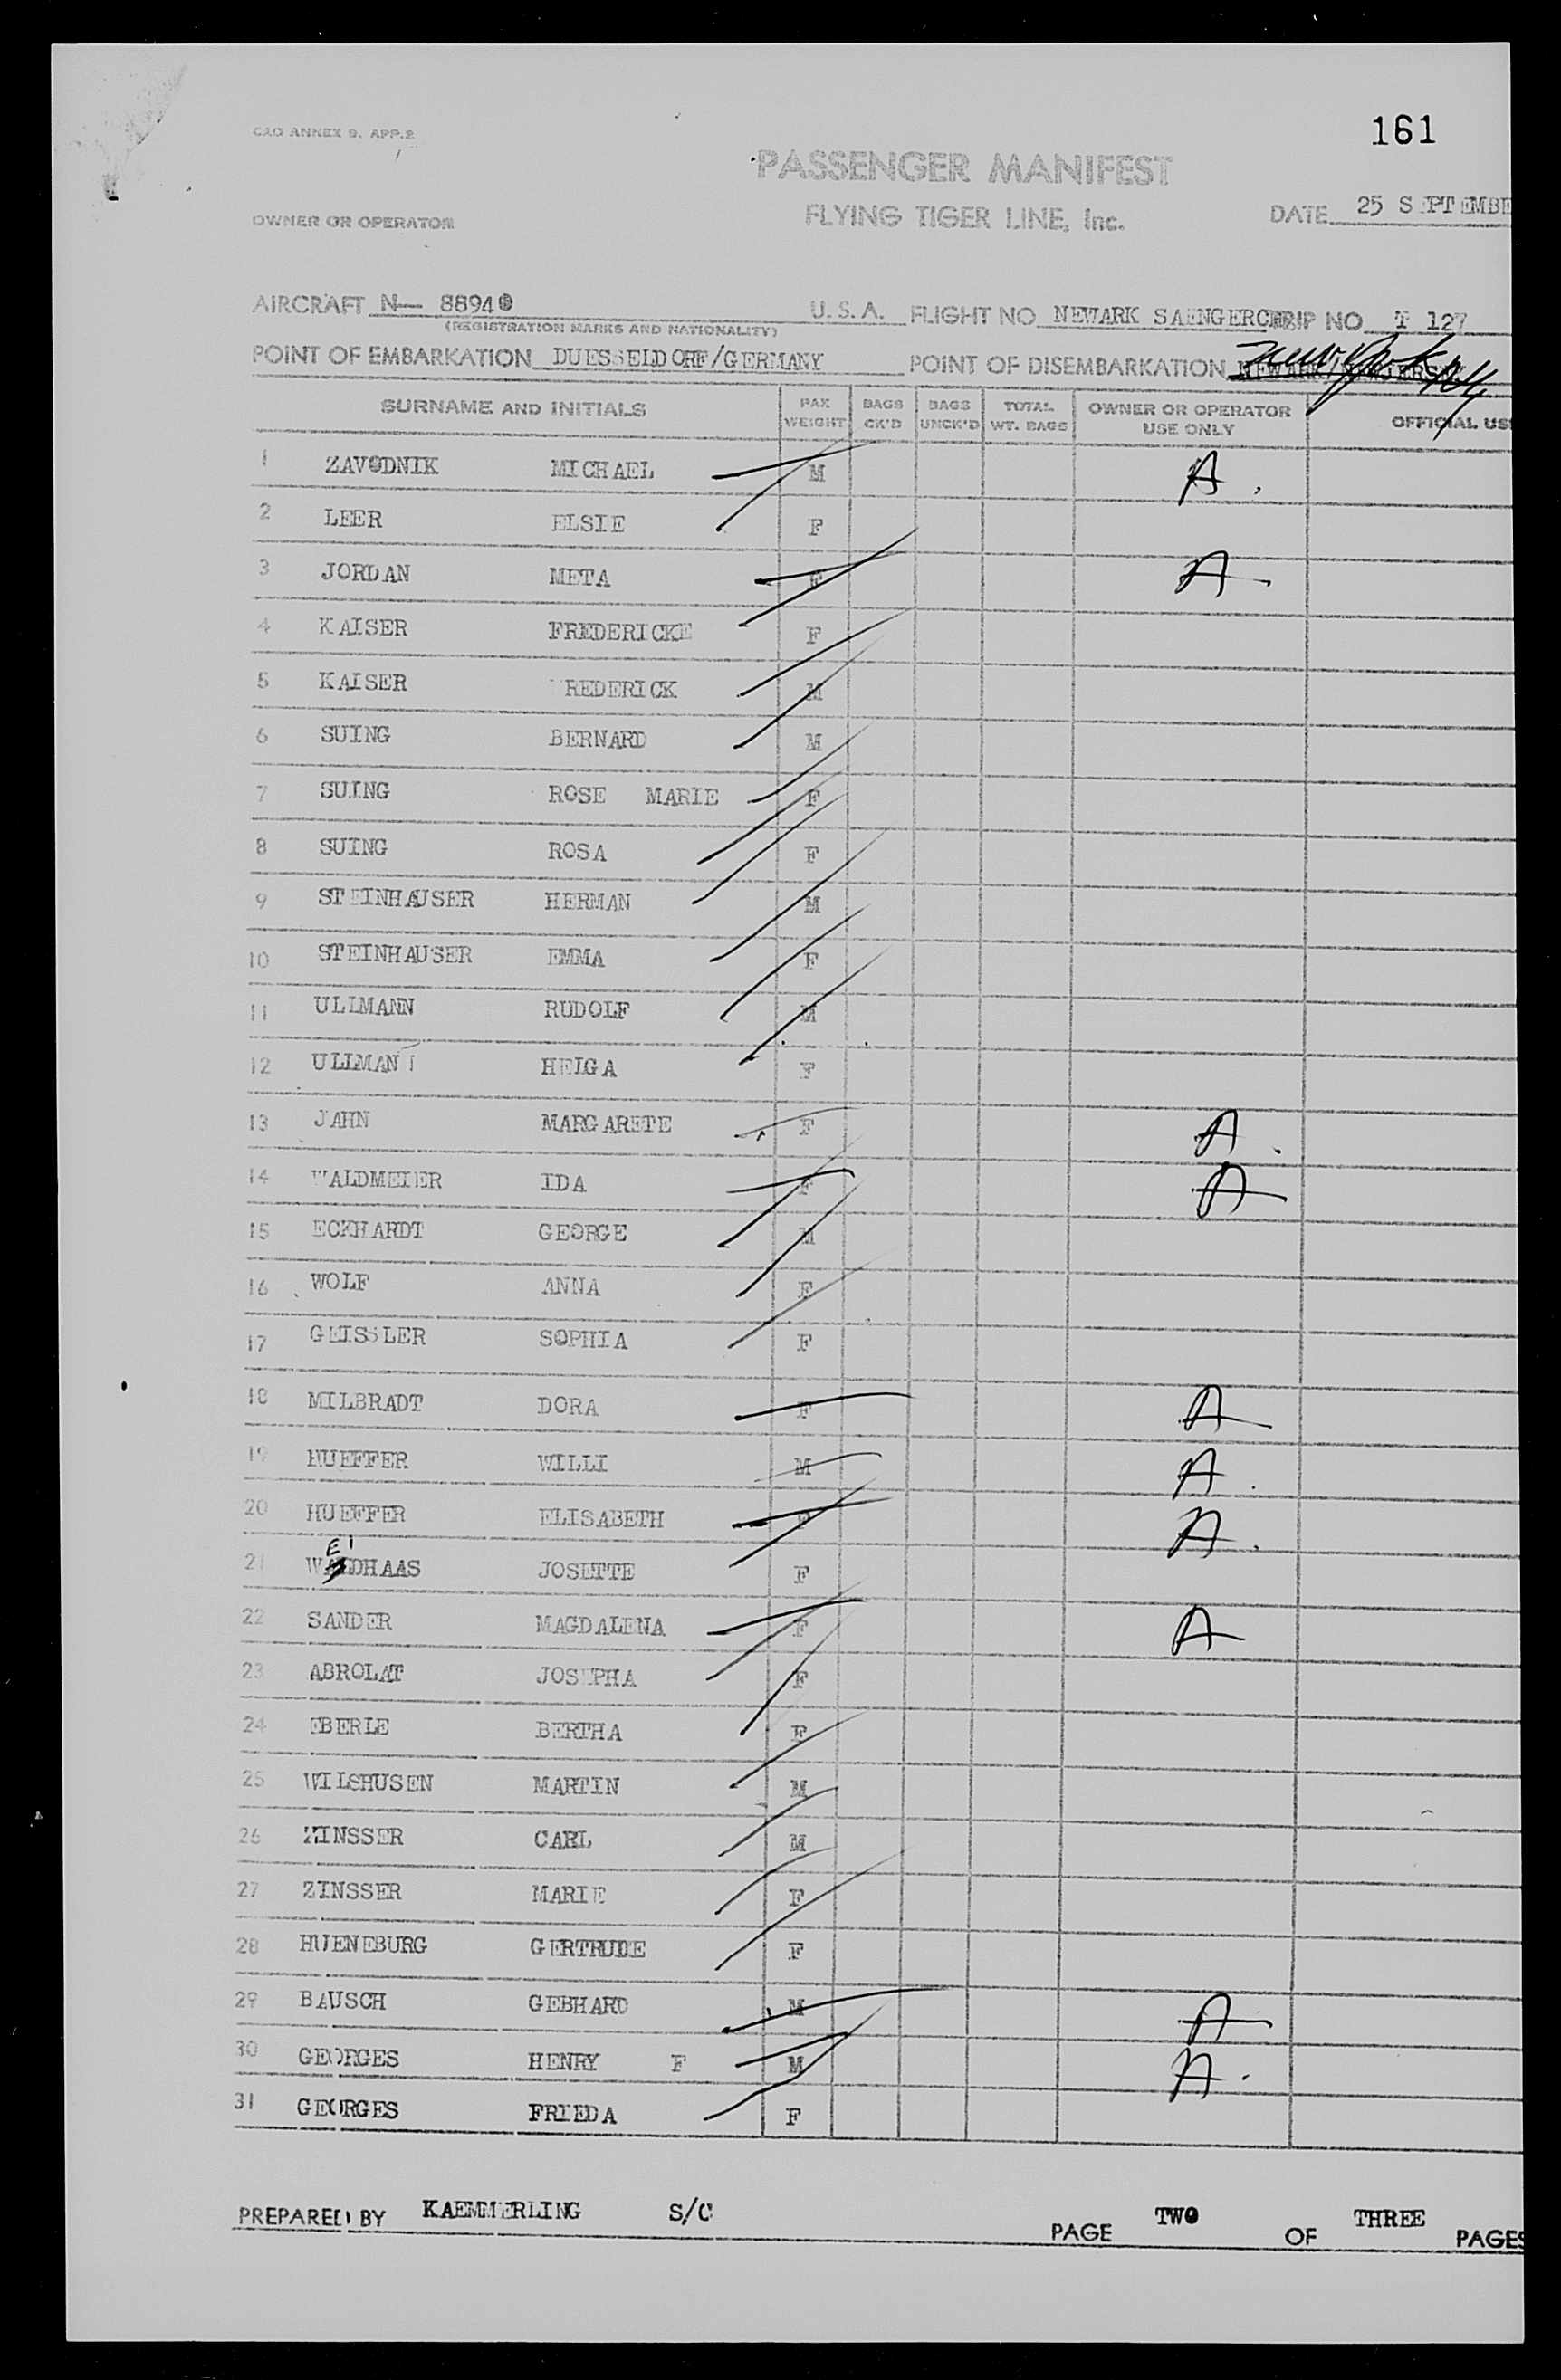 161
CAO ANNEX 9. APP.2
PASSENGER MANIFEST
OWNER OR OPERATOR FLYING TIGER LINE, Inc. DATE 25 SEPTEMBE
AIRCRAFT N— 8894 U.S.A. FLIGHT NO NEWARK SAENGERCH TRIP NO T 127
(REGISTRATION MARKS AND NATIONALITY)
POINT OF EMBARKATION DUESSELDORF/GERMANY POINT OF DISEMBARKATION New York NY
SURNAME AND INITIALS PAX WEIGHT BAGS CK'D BAGS UNCK'D TOTAL WT. BAGS OWNER OR OPERATOR USE ONLY OFFICIAL US
1 ZAVODNIK MICHAEL M A
2 LEER ELSIE F
3 JORDAN META F A
4 KAISER FREDERICKE F
5 KAISER REDERICK M
6 SUING BERNARD M
7 SUING ROSE MARIE F
8 SUING ROSA F
9 STEINHAUSER HERMAN M
10 STEINHAUSER EMMA F
11 ULLMANN RUDOLF M
12 ULLMANN HELGA F
13 JAHN MARGARETE F A
14 WALDMEIER IDA F A
15 ECKHARDT GEORGE M
16 WOLF ANNA F
17 GEISSLER SOPHIA F
18 MILBRADT DORA F A
19 HUEFFER WILLI M A
20 HUEFFER ELISABETH F A
21 WEIDHAAS JOSETTE F
22 SANDER MAGDALENA F A
23 ABROLAT JOSEPHA F
24 EBERLE BERTHA F
25 WILSHUSEN MARTIN M
26 ZINSSER CARL M
27 ZINSSER MARIE F
28 HUENEBURG GERTRUDE F
29 BAUSCH GEBHARD M A
30 GEORGES HENRY F M A
31 GEORGES FRIEDA F
PREPARED BY KAEMMERLING S/C PAGE TWO OF THREE PAGES